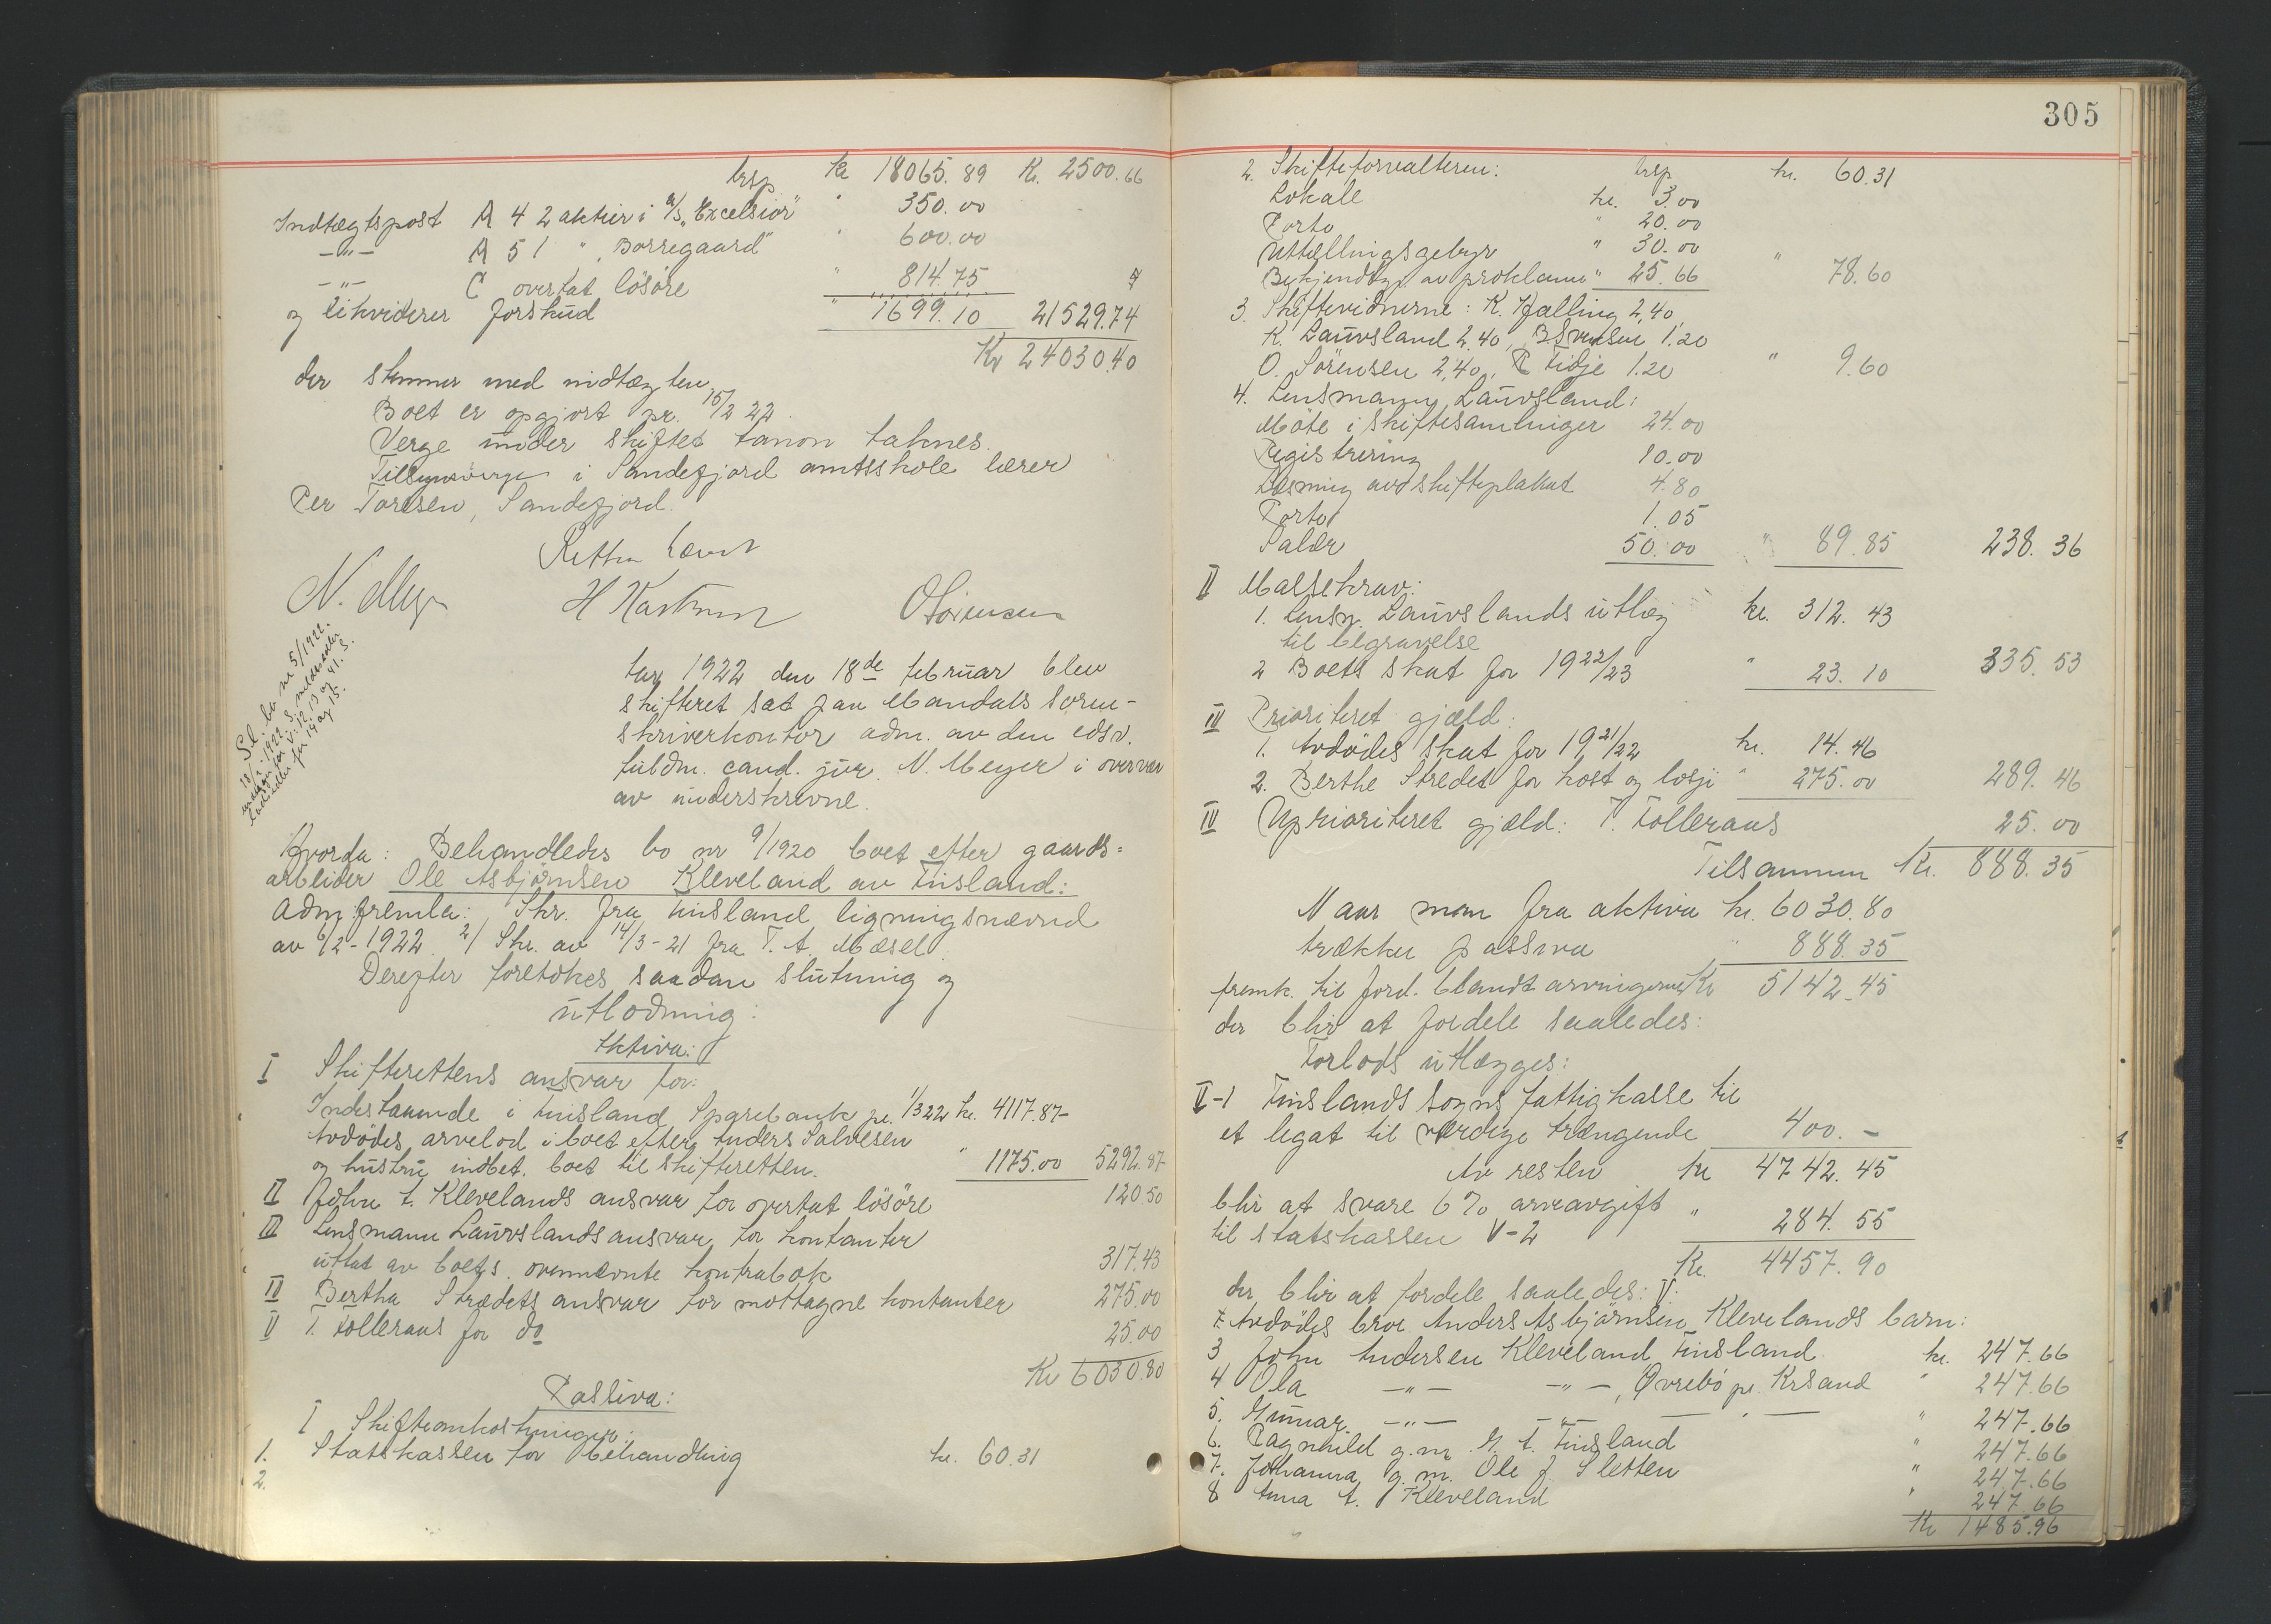 trsp. kr 18065.89 Kr. 2500.66
Indtægtspost A 4 2 aktier i A/S „Excelsior" " 350.00
—"— A 5 1 " „Borregaard" " 600.00
—"— C overtat lösöre " 814.75
og likviderer forskud " 1699.10 21529.74
Kr 24030.40
der stemmer med indtægten.
Boet er opgjort pr. 15/2 22.
Verge under skiftet tanon taknes.
Tilsynsverge i Sandefjord amtsskole lærer
Per Toresen, Sandefjord.
Retten hævet
N. Meyer H Kastrup O Sörensen
Sl. bo nr 5/1922.
Aar 1922 den 18de februar blev
skifteret sat paa Mandals soren-
skriverkontor adm. av den edsv.
fuldm. cand. jur. N. Meyer i overvær
av underskrevne.
Hvorda: Behandledes bo nr 9/1920 boet efter gaards-
arbeider Ole Asbjörnsen Kleveland av Finsland:
Adm fremla: Skr. fra Finsland ligningsnævnd
av 6/2-1922 2/ Skr. av 14/3-21 fra T. A. Mæsel.
Derefter foretokes saadan slutning og
utlodning:
Aktiva:
I Skifterettens ansvar for:
Indestaaende i Finsland Sparebank pr. 1/3 22 kr. 4117.87-
Avdödes arvelod i boet efter Anders Salvesen
og hustru indbet. boet til skifteretten. " 1175.00 5292.87
II John A. Klevelands ansvar for overtat lösöre 120.50
III Lensmann Lauvslands ansvar for kontanter
uttat av boets ovennævnte kontrabok 317.43
IV Bertha Strædets ansvar for mottagne kontanter 275.00
V T. Folleraas for do 25.00
Kr 6030.80
Passiva:
I Skifteomkostninger:
1. Statskassen for behandling kr. 60.31
2.
305
2. Skifteforvalteren: trsp kr. 60.31
Lokale kr. 3.00
Porto " 20.00
Uttællingsgebyr " 30.00
Bekjendtgj. av proklama " 25.66 " 78.60
3. Skiftevidnerne: K. Hælling 2,40,
K. Lauvsland 2.40, B Svensen 1.20
O. Sörensen 2,40, P. Tidje 1.20 " 9.60
4. Lensmann Lauvsland:
Möte i skiftesamlinger 24.00
Registrering 10.00
Læsning av skifteplakat 4.80
Porto 1.05
Salær 50.00 " 89.85 238.36
II Massekrav:
1. Lensm. Lauvslands utlæg kr. 312.43
til begravelse
2 Boets skat for 1922/23 " 23.10 335.53
III Prioritert gjæld:
1. Avdödes skat for 1921/22 kr. 14.46
2. Berthe Strædet for kost og losji " 275.00 289.46
IV Uprioritert gjæld: T. Folleraas 25.00
Tilsammen Kr. 888.35
Naar man fra aktiva kr. 6030.80
trækker passiva " 888.35
fremk. til ford. blandt arvingerne Kr 5142.45
der blir at fordele saaledes:
Forlods utlægges:
V-1 Finslands sogns fattigkasse til
et legat til værdige trængende 400.-
Av resten kr 4742.45
blir at svare 6% arveavgift " 284.55
til statskassen V-2
Kr. 4457.90
der blir at fordele saaledes: V:
Avdödes bror Anders Asbjörnsen Klevelands barn:
3 John Andersen Kleveland, Finsland kr. 247.66
4 Ola —"— —"—, Øvrebö pr. Krsand " 247.66
5. Gunnar —"— —"— —"— " 247.66
6. Ragnhild g. m. G. A. Finsland " 247.66
7. Johanna g. m. Ole J. Sletten " 247.66
8 Anna A. Kleveland " 247.66
Kr 1485.96